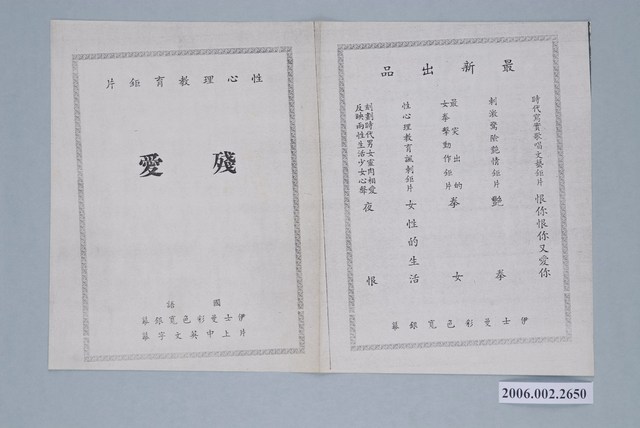 最新出品
時代寫實歌唱文藝鉅片 恨你恨你又愛你
刺激驚險艷情鉅片 艷拳
最突出的
女拳擊動作鉅片 拳女
性心理教育諷刺鉅片 女性的生活
刻劃時代男女靈肉相愛
反映兩性生活少女心聲 夜恨
伊士曼彩色寬銀幕
性心理教育鉅片
殘愛
國話
伊士曼彩色寬銀幕
片上中英文字幕
2006.002.2650